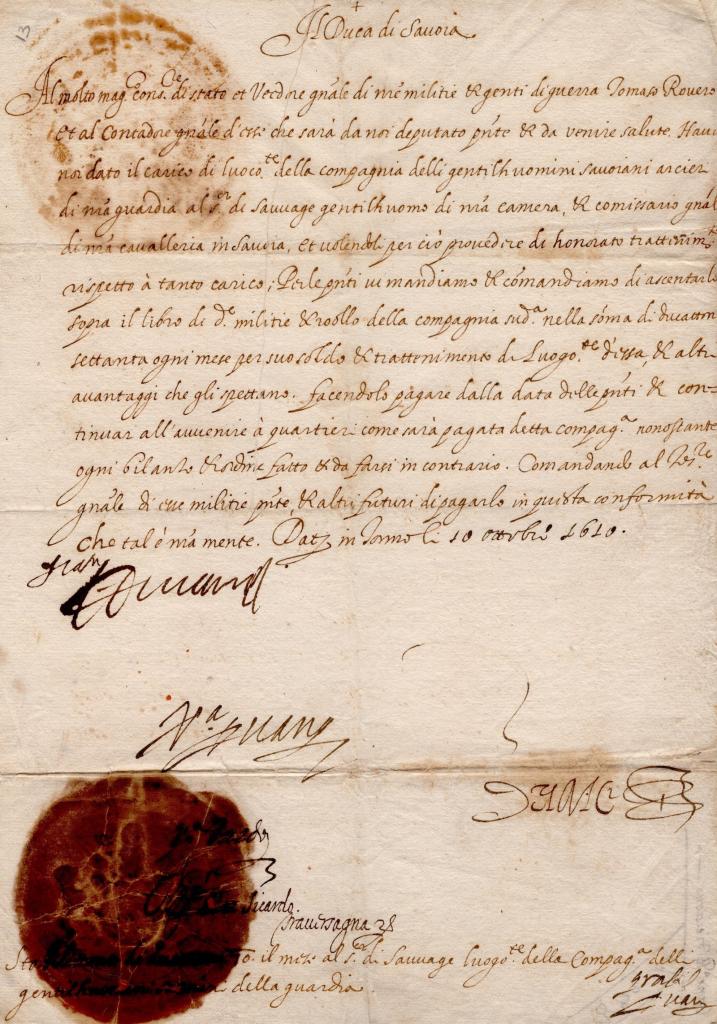 13
Il Duca di Savoia
Al molto mag.co cons.re di stato et Veedore gn̄ale di nr̄e militie & genti di guerra Tomaso Rovero
et al Contadore gn̄ale d'esse che sarà da noi deputato pn̄te & da venire salute. Havē
noi dato il carico di luoco.te della compagnia delli gentilhuomini savoiani arcier
di nr̄a guardia al s.or di Sauuage gentilhuomo di nr̄a camera, & comissario gn̄al
di nr̄a cavalleria in Savoia, et volendoli per ciò provedere di honorato trattenim.to
rispetto à tanto carico; Per le pn̄ti vi mandiamo & comandiamo di ascentarlo
sopra il libro di d.e militie & roollo della compagnia sud.a nella sōma di ducattoni
settanta ogni mese per suo soldo & trattenimento di Luogo.te d'essa, & altri
avantaggi che gli spettano. facendolo pagare dalla data delle pn̄ti & con=
tinuar all'avvenire à quartieri come sarà pagata detta compag.a nonostante
ogni bilanzo & ordine fatto & da farsi in contrario. Comandando al Tes.re
gn̄ale di esse militie pn̄te, & altri futuri di pagarlo in questa conformità
che tal é nr̄a mente. Dat in Torino li 10 ottobre 1610.
V.a
Sicardo.
il mese al s.or di Sauuage luogo.te della Compag.a delli
gentilhuomini della guardia